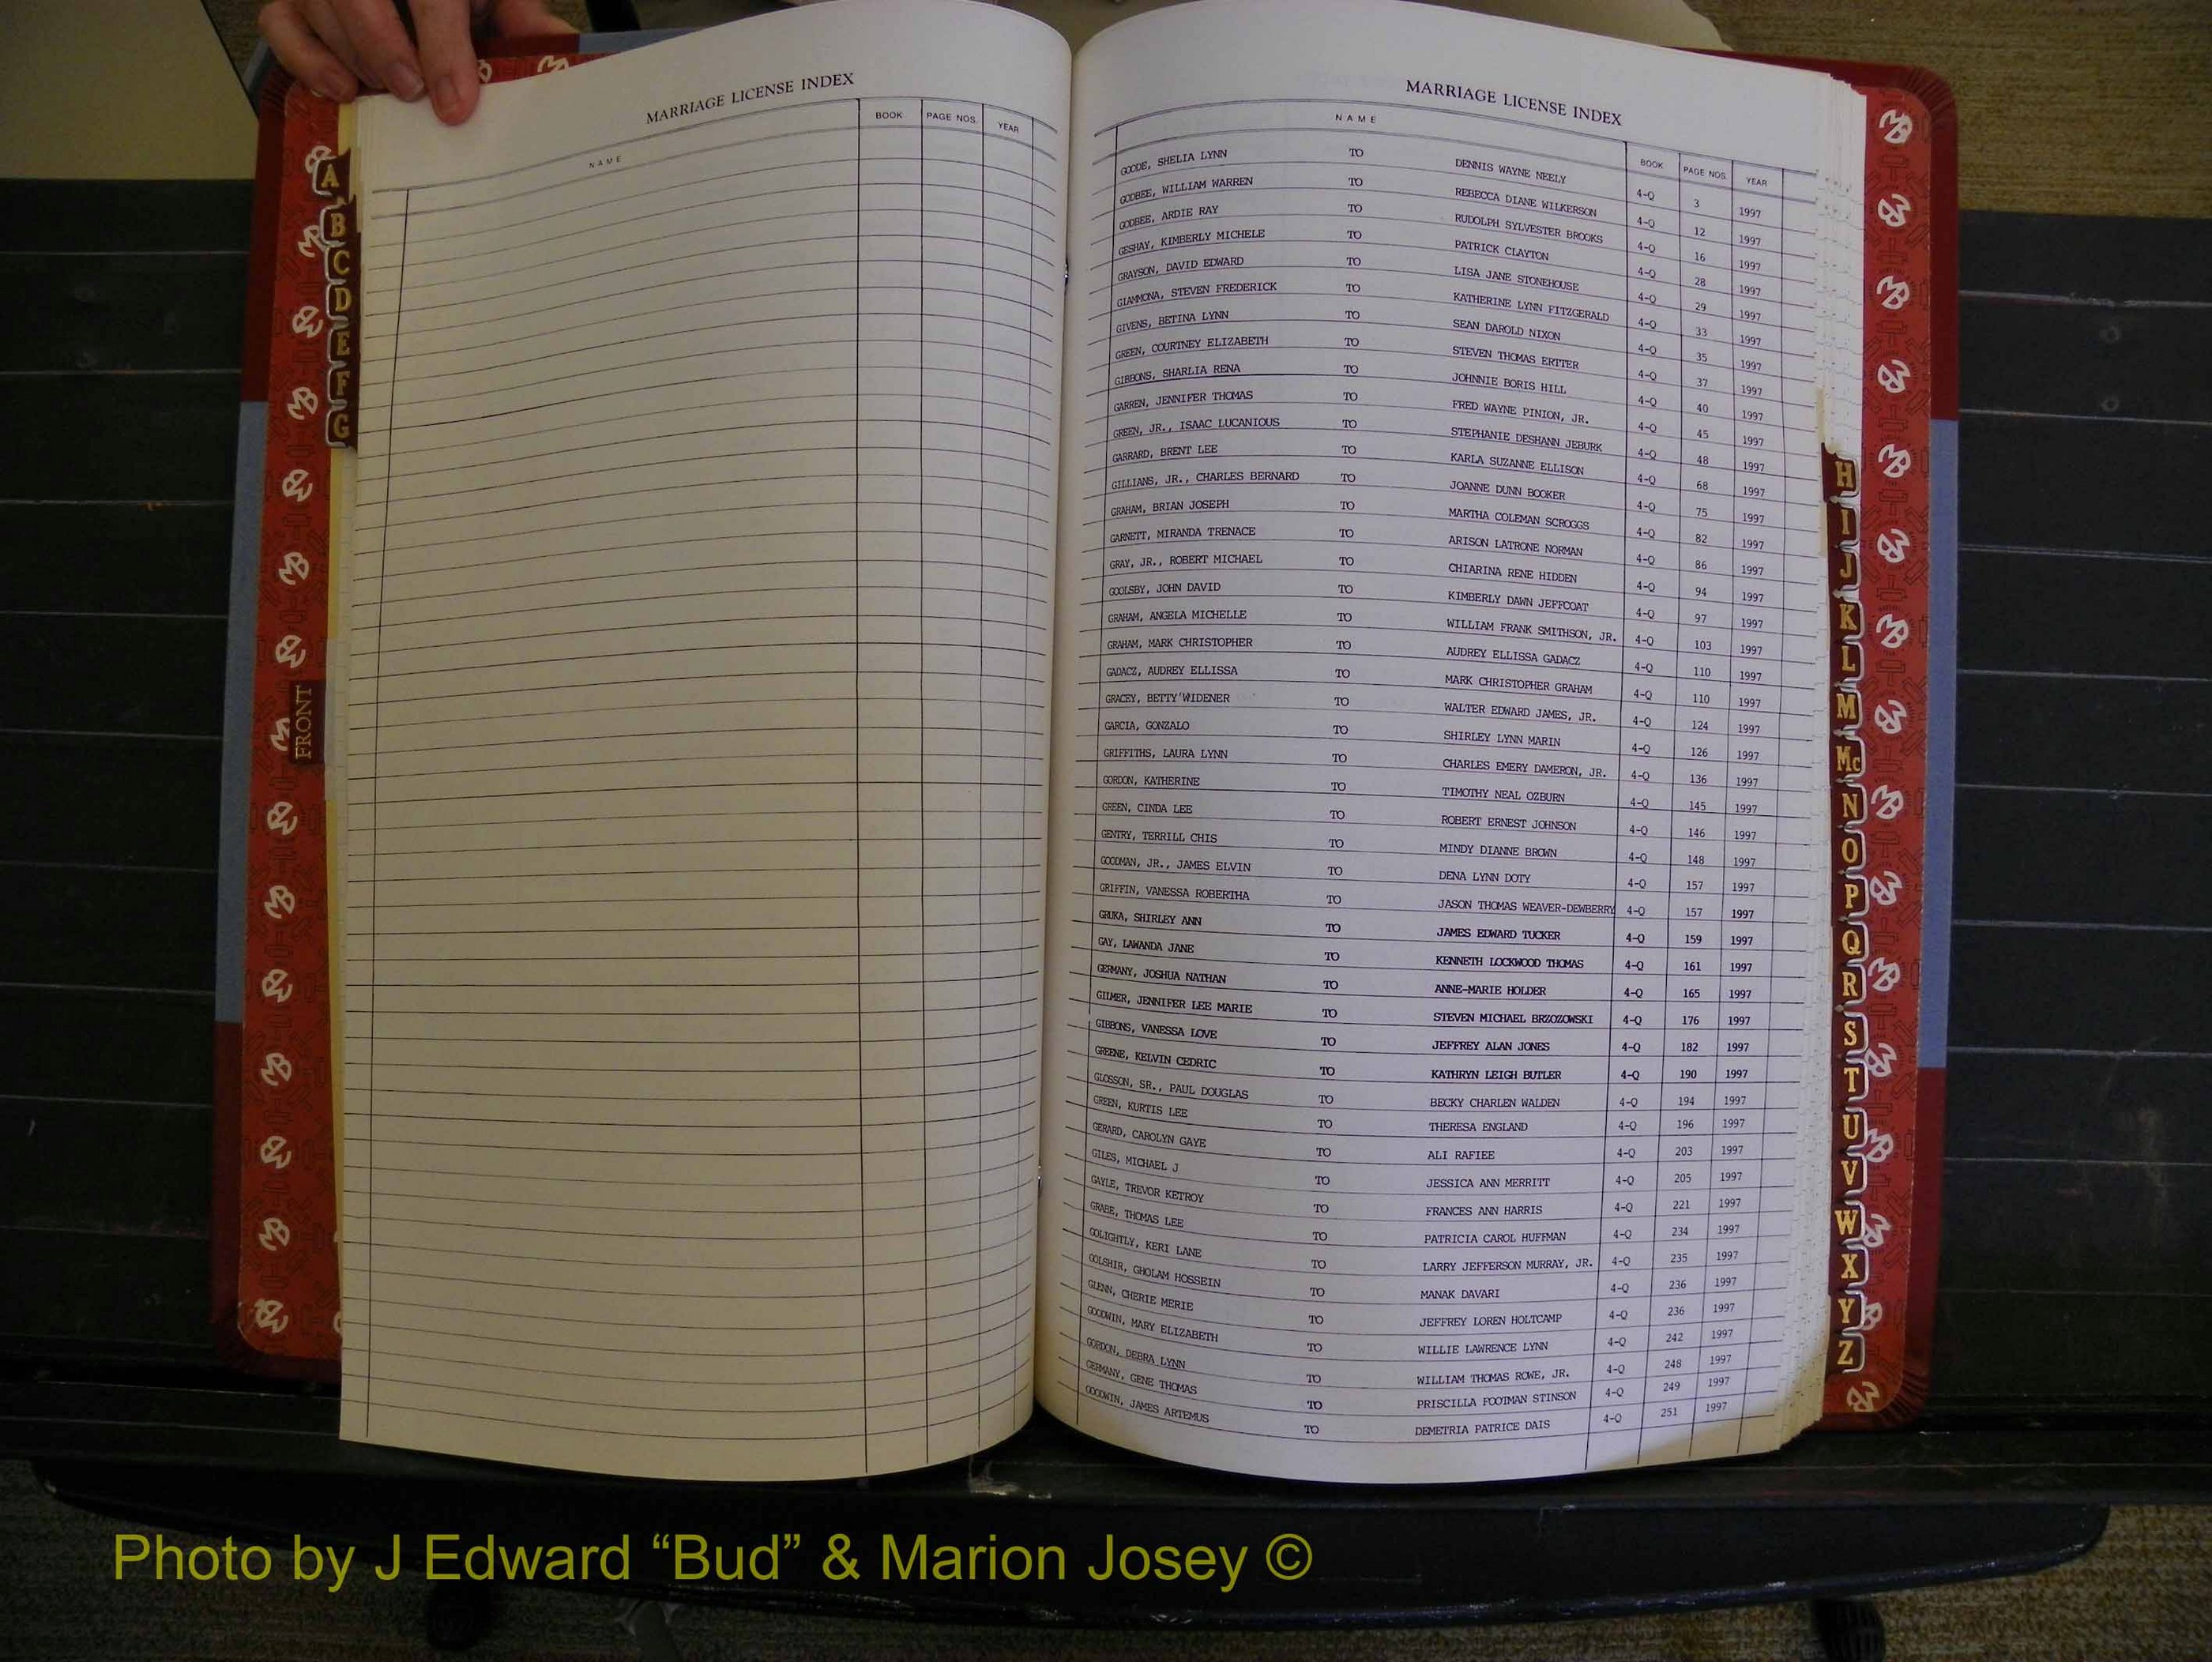 MARRIAGE LICENSE INDEX
NAME BOOK PAGE NOS. YEAR
MARRIAGE LICENSE INDEX
NAME BOOK PAGE NOS. YEAR
GOODE, SHELIA LYNN TO DENNIS WAYNE NEELY 4-Q 3 1997
GODBEE, WILLIAM WARREN TO REBECCA DIANE WILKERSON 4-Q 12 1997
GODBEE, ARDIE RAY TO RUDOLPH SYLVESTER BROOKS 4-Q 16 1997
GESHAY, KIMBERLY MICHELE TO PATRICK CLAYTON 4-Q 28 1997
GRAYSON, DAVID EDWARD TO LISA JANE STONEHOUSE 4-Q 29 1997
GIAMMONA, STEVEN FREDERICK TO KATHERINE LYNN FITZGERALD 4-Q 33 1997
GIVENS, BETINA LYNN TO SEAN DAROLD NIXON 4-Q 35 1997
GREEN, COURTNEY ELIZABETH TO STEVEN THOMAS ERTTER 4-Q 37 1997
GIBBONS, SHARLIA RENA TO JOHNNIE BORIS HILL 4-Q 40 1997
GARREN, JENNIFER THOMAS TO FRED WAYNE PINION, JR. 4-Q 45 1997
GREEN, JR., ISAAC LUCANIOUS TO STEPHANIE DESHANN JEBURK 4-Q 48 1997
GARRARD, BRENT LEE TO KARLA SUZANNE ELLISON 4-Q 68 1997
GILLIANS, JR., CHARLES BERNARD TO JOANNE DUNN BOOKER 4-Q 75 1997
GRAHAM, BRIAN JOSEPH TO MARTHA COLEMAN SCROGGS 4-Q 82 1997
GARNETT, MIRANDA TRENACE TO ARISON LATRONE NORMAN 4-Q 86 1997
GRAY, JR., ROBERT MICHAEL TO CHIARINA RENE HIDDEN 4-Q 94 1997
GOOLSBY, JOHN DAVID TO KIMBERLY DAWN JEFFCOAT 4-Q 97 1997
GRAHAM, ANGELA MICHELLE TO WILLIAM FRANK SMITHSON, JR. 4-Q 103 1997
GRAHAM, MARK CHRISTOPHER TO AUDREY ELLISSA GADACZ 4-Q 110 1997
GADACZ, AUDREY ELLISSA TO MARK CHRISTOPHER GRAHAM 4-Q 110 1997
GRACEY, BETTY WIDENER TO WALTER EDWARD JAMES, JR. 4-Q 124 1997
GARCIA, GONZALO TO SHIRLEY LYNN MARIN 4-Q 126 1997
GRIFFITHS, LAURA LYNN TO CHARLES EMERY DAMERON, JR. 4-Q 136 1997
GORDON, KATHERINE TO TIMOTHY NEAL OZBURN 4-Q 145 1997
GREEN, CINDA LEE TO ROBERT ERNEST JOHNSON 4-Q 146 1997
GENTRY, TERRILL CHIS TO MINDY DIANNE BROWN 4-Q 148 1997
GOODMAN, JR., JAMES ELVIN TO DENA LYNN DOTY 4-Q 157 1997
GRIFFIN, VANESSA ROBERTHA TO JASON THOMAS WEAVER-DEWBERRY 4-Q 157 1997
GRUKA, SHIRLEY ANN TO JAMES EDWARD TUCKER 4-Q 159 1997
GAY, LAWANDA JANE TO KENNETH LOCKWOOD THOMAS 4-Q 161 1997
GERMANY, JOSHUA NATHAN TO ANNE-MARIE HOLDER 4-Q 165 1997
GILMER, JENNIFER LEE MARIE TO STEVEN MICHAEL BRZOZOWSKI 4-Q 176 1997
GIBBONS, VANESSA LOVE TO JEFFREY ALAN JONES 4-Q 182 1997
GREENE, KELVIN CEDRIC TO KATHRYN LEIGH BUTLER 4-Q 190 1997
GLOSSON, SR., PAUL DOUGLAS TO BECKY CHARLEN WALDEN 4-Q 194 1997
GREEN, KURTIS LEE TO THERESA ENGLAND 4-Q 196 1997
GERARD, CAROLYN GAYE TO ALI RAFIEE 4-Q 203 1997
GILES, MICHAEL J TO JESSICA ANN MERRITT 4-Q 205 1997
GAYLE, TREVOR KETROY TO FRANCES ANN HARRIS 4-Q 221 1997
GRABE, THOMAS LEE TO PATRICIA CAROL HUFFMAN 4-Q 234 1997
GOLIGHTLY, KERI LANE TO LARRY JEFFERSON MURRAY, JR. 4-Q 235 1997
GOLSHIR, GHOLAM HOSSEIN TO MANAK DAVARI 4-Q 236 1997
GLENN, CHERIE MERIE TO JEFFREY LOREN HOLTCAMP 4-Q 236 1997
GOODWIN, MARY ELIZABETH TO WILLIE LAWRENCE LYNN 4-Q 242 1997
GORDON, DEBRA LYNN TO WILLIAM THOMAS ROWE, JR. 4-Q 248 1997
GERMANY, GENE THOMAS TO PRISCILLA FOOTMAN STINSON 4-Q 249 1997
GOODWIN, JAMES ARTEMUS TO DEMETRIA PATRICE DAIS 4-Q 251 1997
A
B
C
D
E
F
G
FRONT
H
I
J
K
L
M
Mc
N
O
P
Q
R
S
T
U
V
W
X
Y
Z
Photo by J Edward “Bud” & Marion Josey ©